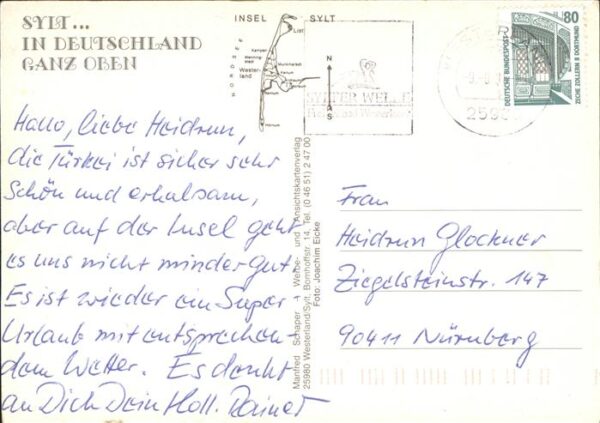 SYLT...
IN DEUTSCHLAND
GANZ OBEN
INSEL SYLT
NORDSEE
List
Kampen
Westerland
N
S
SYLTER WELLE
2598
80
DEUTSCHE BUNDESPOST
ZECHE ZOLLERN II DORTMUND
Hallo, liebe Heidrun,
die Türkei ist sicher sehr
schön und erholsam,
aber auf der Insel geht
es uns nicht minder gut.
Es ist wieder ein Super
Urlaub mit entsprechen-
dem Wetter. Es denkt
an Dich Dein Holl. Rainer
Manfred Schaper · Werbe- und Ansichtskartenverlag
25980 Westerland/Sylt, Bomhoffstr. 14, Tel. (0 46 51) 2 47 00
Foto: Joachim Eicke
Frau
Heidrun Glockner
Ziegelsteinstr. 147
90411 Nürnberg